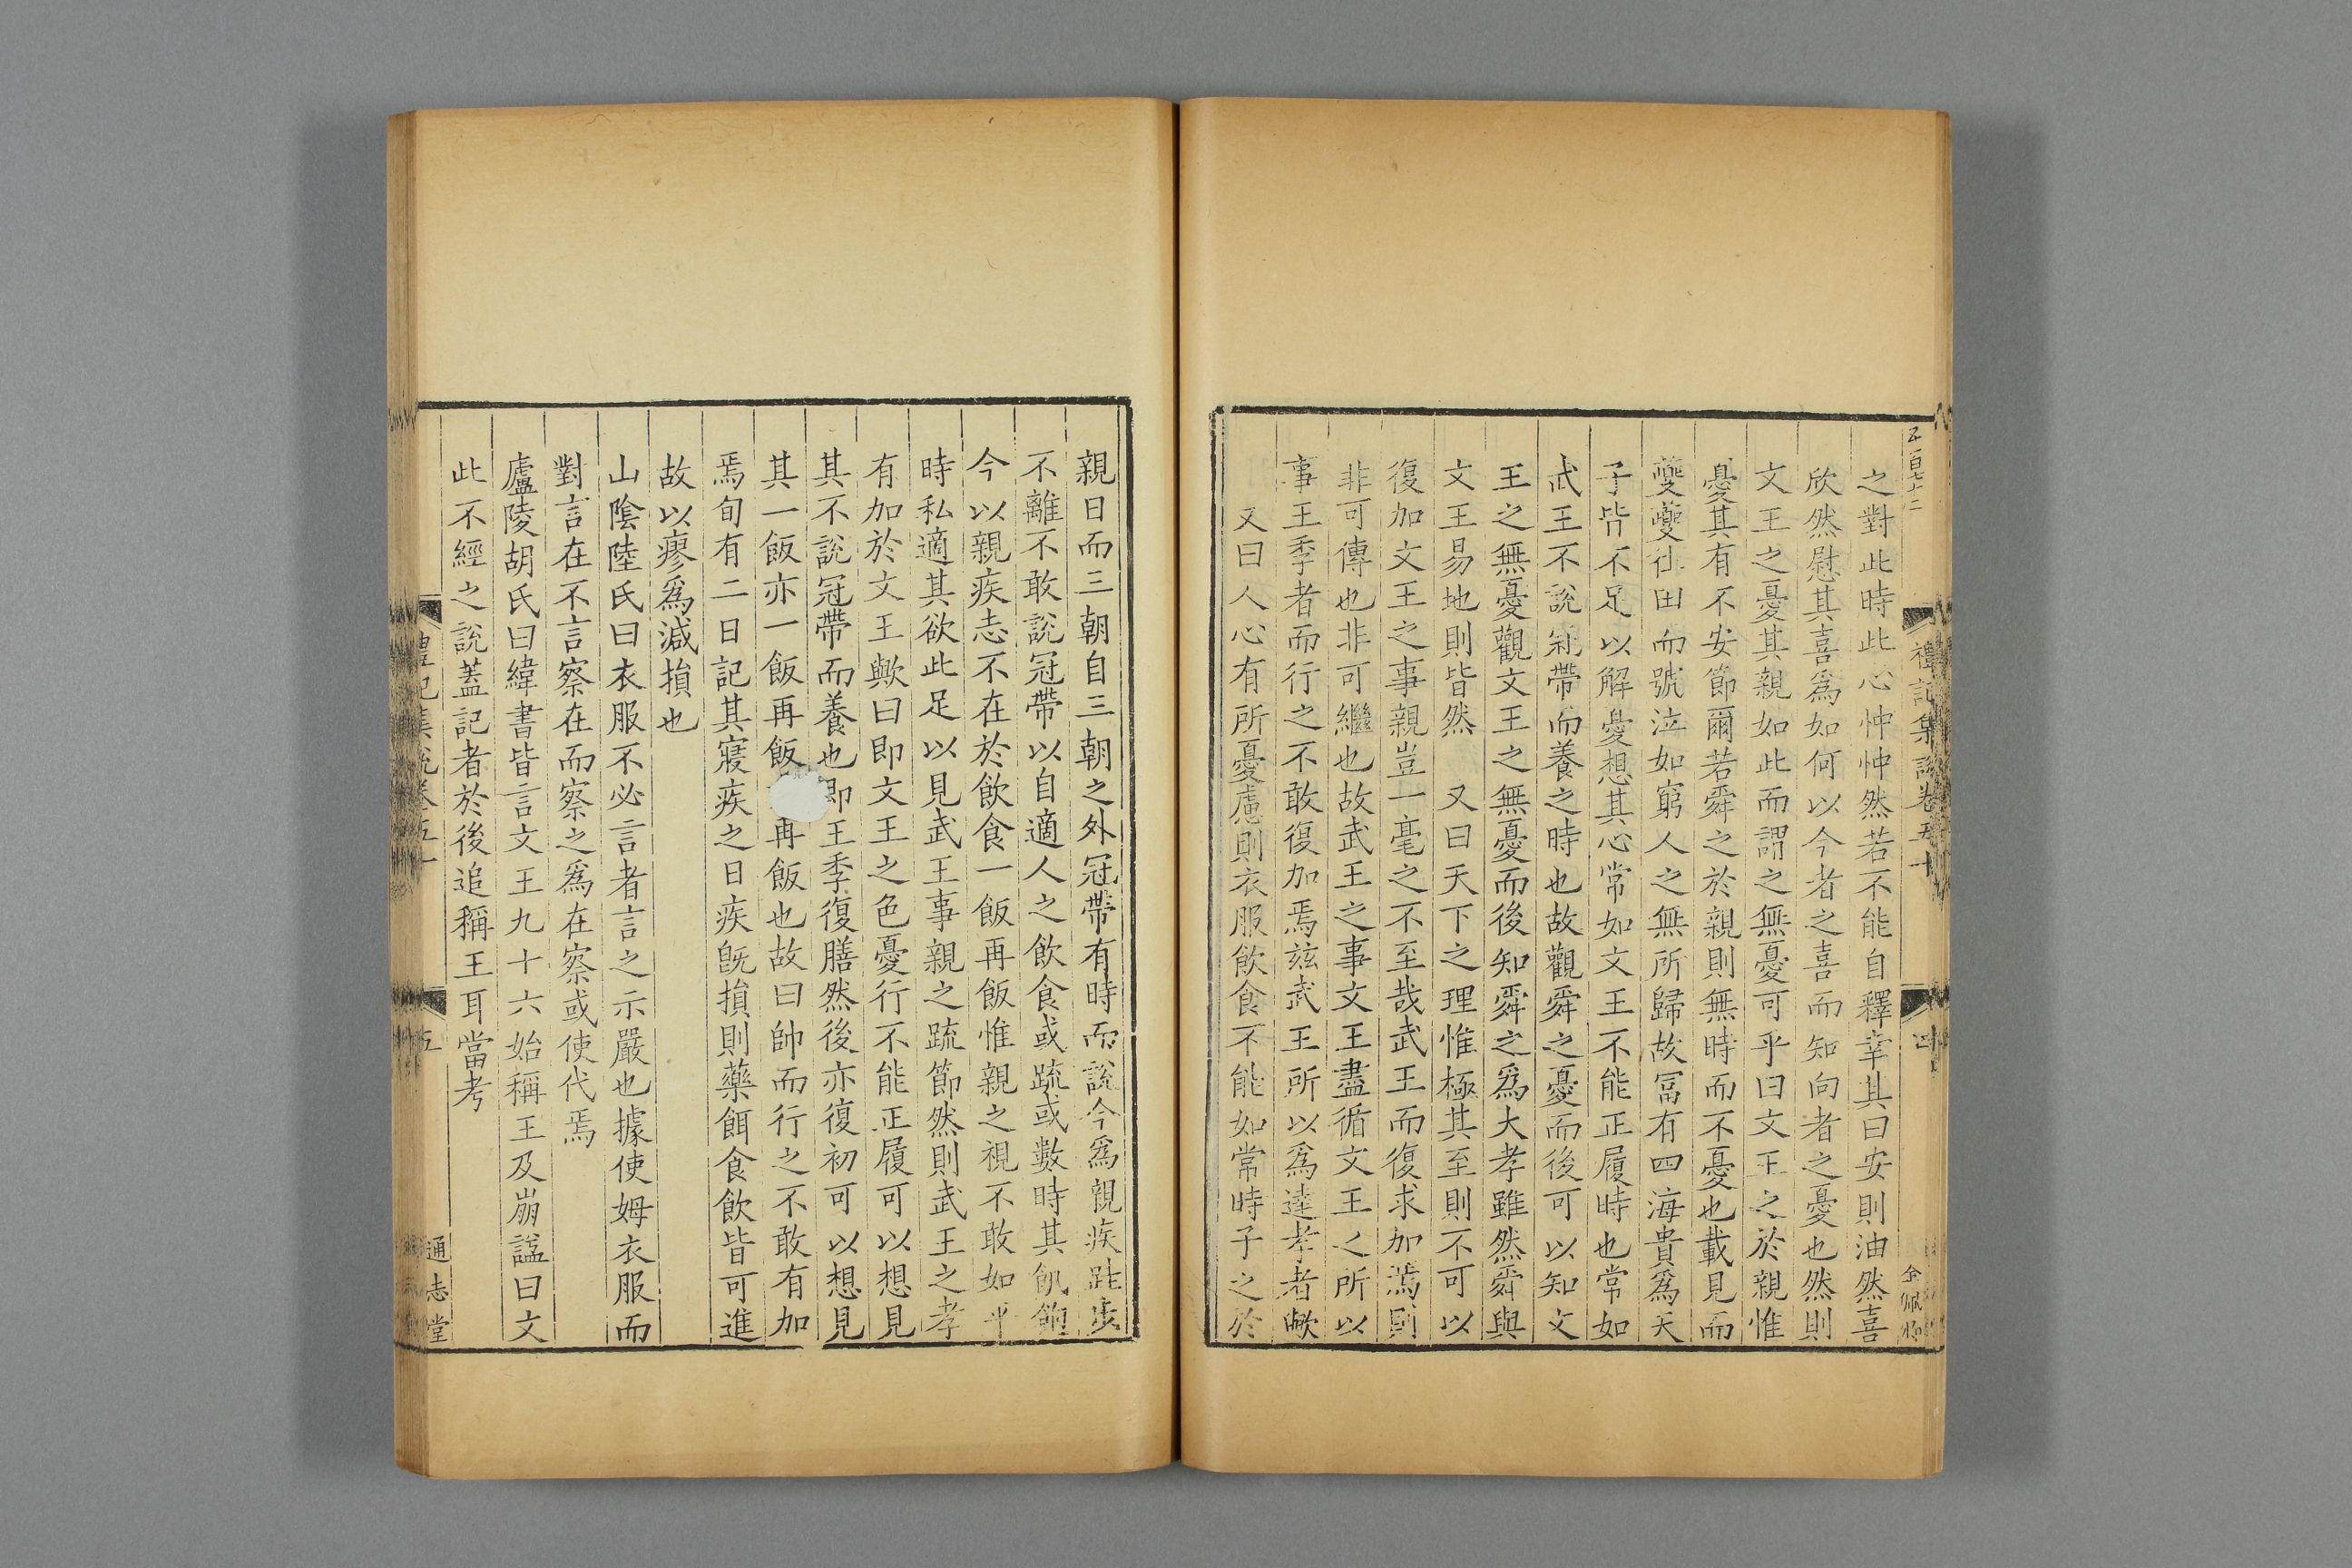 五百七十二
禮記集說卷五十
四
余佩
之對此時此心忡忡然若不能自釋幸其曰安則油然喜
欣然慰其喜爲如何以今者之喜而知向者之憂也然則
文王之憂其親如此而謂之無憂可乎曰文王之於親惟
憂其有不安節爾若舜之於親則無時而不憂也載見而
夔夔往田而號泣如窮人之無所歸故冨有四海貴爲天
子皆不足以解憂想其心常如文王不能正履時也常如
武王不說冠帶而養之時也故觀舜之憂而後可以知文
王之無憂觀文王之無憂而後知舜之爲大孝雖然舜與
文王易地則皆然 又曰天下之理惟極其至則不可以
復加文王之事親豈一毫之不至哉武王而復求加焉則
非可傳也非可繼也故武王之事文王盡循文王之所以
事王季者而行之不敢復加焉兹武王所以爲達孝者歟
又曰人心有所憂慮則衣服飲食不能如常時子之於
親日而三朝自三朝之外冠帶有時而說今爲親疾跬步
不離不敢說冠帶以自適人之飲食或疏或數時其飢飽
今以親疾志不在於飲食一飯再飯惟親之視不敢如平
時私適其欲此足以見武王事親之疏節然則武王之孝
有加於文王歟曰即文王之色憂行不能正履可以想見
其不說冠帶而養也即王季復膳然後亦復初可以想見
其一飯亦一飯再飯再飯也故曰帥而行之不敢有加
焉旬有二日記其寢疾之日疾既損則藥餌食飲皆可進
故以瘳爲減損也
山陰陸氏曰衣服不必言者言之示嚴也據使姆衣服而
對言在不言察在而察之爲在察或使代焉
廬陵胡氏曰緯書皆言文王九十六始稱王及崩謚曰文
此不經之說蓋記者於後追稱王耳當考
禮記集說卷五十
五
通志堂